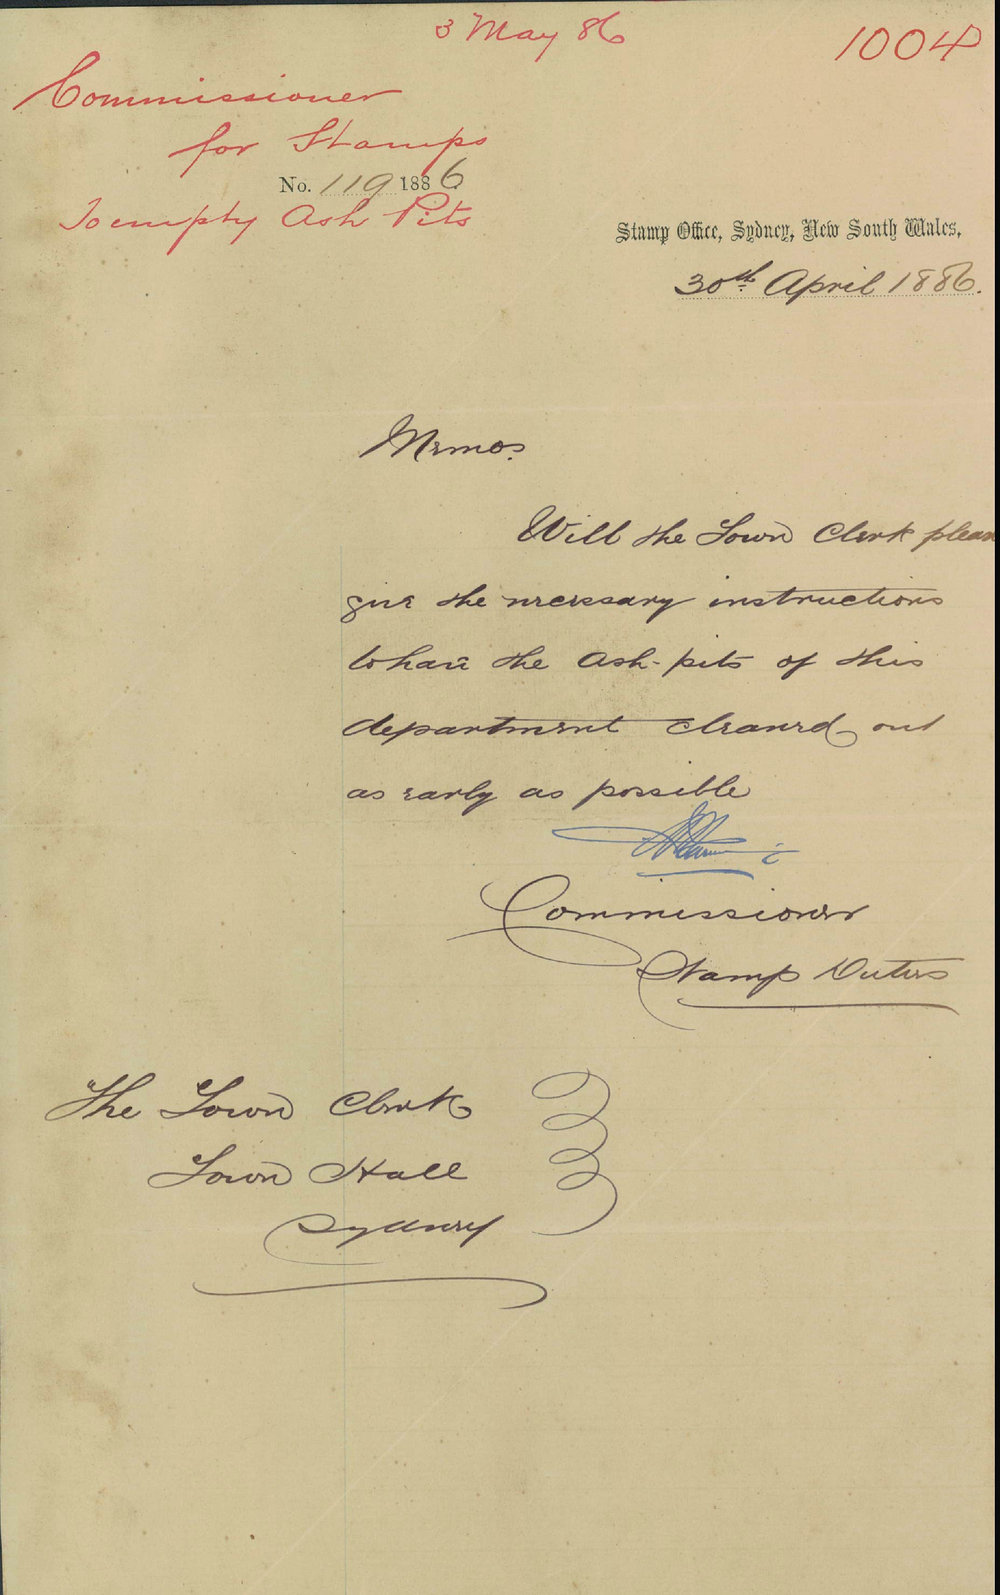 3 May 86
1004
Commissioner
for Stamps
No. 119 1886
To empty Ash Pits
Stamp Office, Sydney, New South Wales,
30th April 1886.
Memo.
Will the Town Clerk please
give the necessary instructions
to have the ash-pits of this
department cleaned out
as early as possible
Commissioner
Stamp Duties
The Town Clerk
Town Hall
Sydney